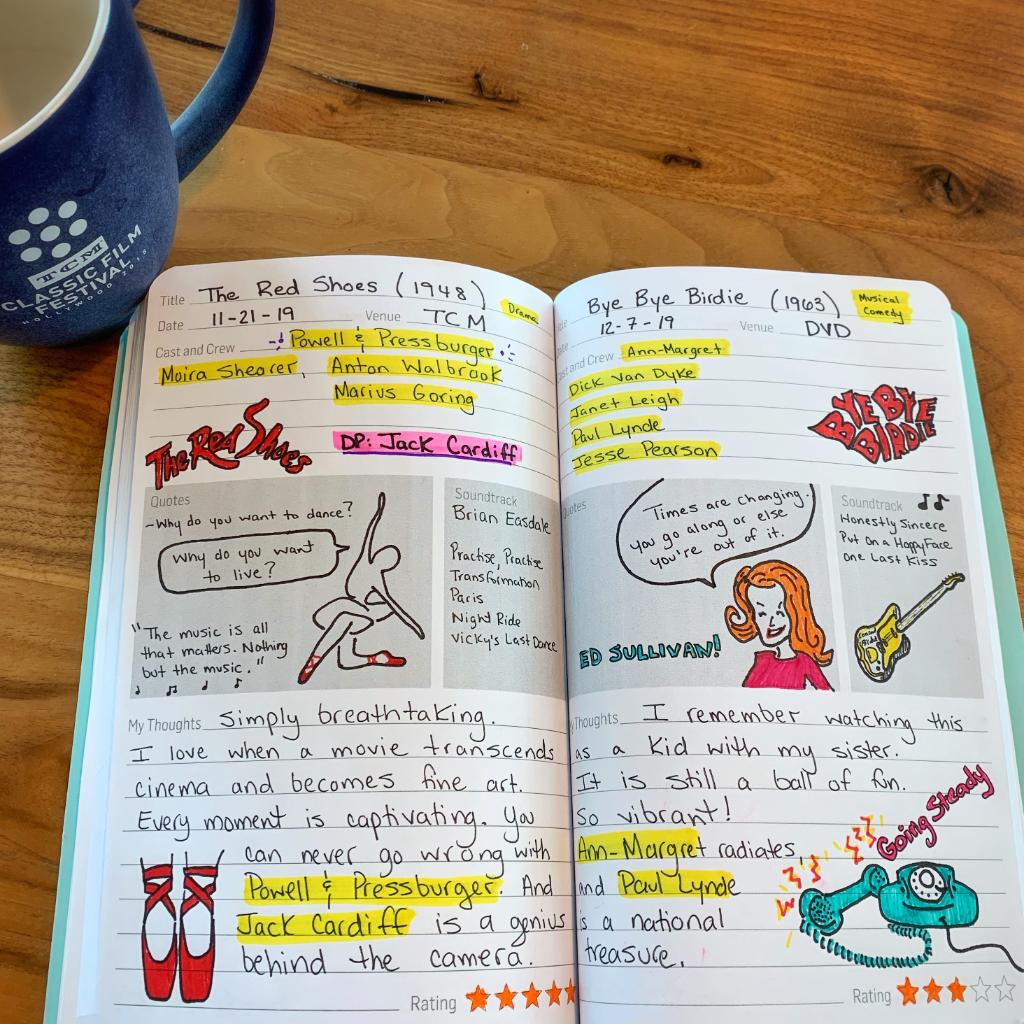 TCM
CLASSIC FILM
FESTIVAL
HOLLYWOOD 2015
Title The Red Shoes (1948)
Drama
Date 11-21-19 Venue TCM
Cast and Crew Powell & Pressburger
Moira Shearer, Anton Walbrook
Marius Goring
The Red Shoes
DP: Jack Cardiff
Quotes
-Why do you want to dance?
Why do you want
to live?
"The music is all
that matters. Nothing
but the music."
Soundtrack
Brian Easdale
Practise, Practise
Transformation
Paris
Night Ride
Vicky's Last Dance
My Thoughts Simply breathtaking.
I love when a movie transcends
cinema and becomes fine art.
Every moment is captivating. You
can never go wrong with
Powell & Pressburger. And
Jack Cardiff is a genius
behind the camera.
Rating
Bye Bye Birdie (1963)
Musical
Comedy
12-7-19 Venue DVD
and Crew Ann-Margret
Dick Van Dyke
Janet Leigh
Paul Lynde
Jesse Pearson
BYE BYE
BIRDIE
Quotes
Times are changing.
You go along or else
you're out of it.
ED SULLIVAN!
Soundtrack
Honestly Sincere
Put On a Happy Face
One Last Kiss
Conrad
Birdie
Thoughts I remember watching this
as a kid with my sister.
It is still a ball of fun.
So vibrant!
Ann-Margret radiates,
and Paul Lynde
is a national
treasure.
Going Steady
Rating